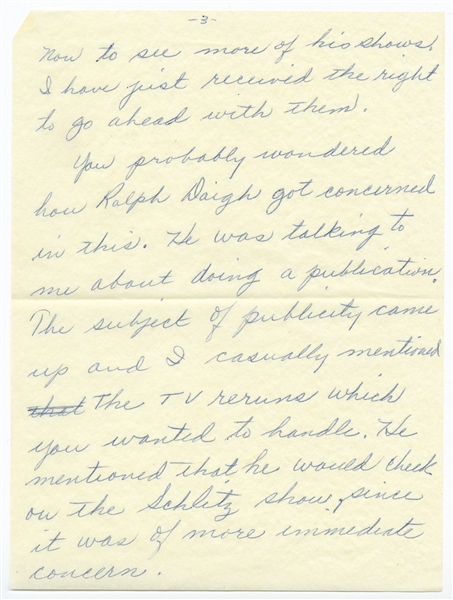 -3-
now to see more of his shows.
I have just received the right
to go ahead with them.
You probably wondered
how Ralph Daigh got concerned
in this. He was talking to
me about doing a publication.
The subject of publicity came
up and I casually mentioned
that The TV reruns which
you wanted to handle. He
mentioned that he would check
on the Schlitz show, since
it was of more immediate
concern.